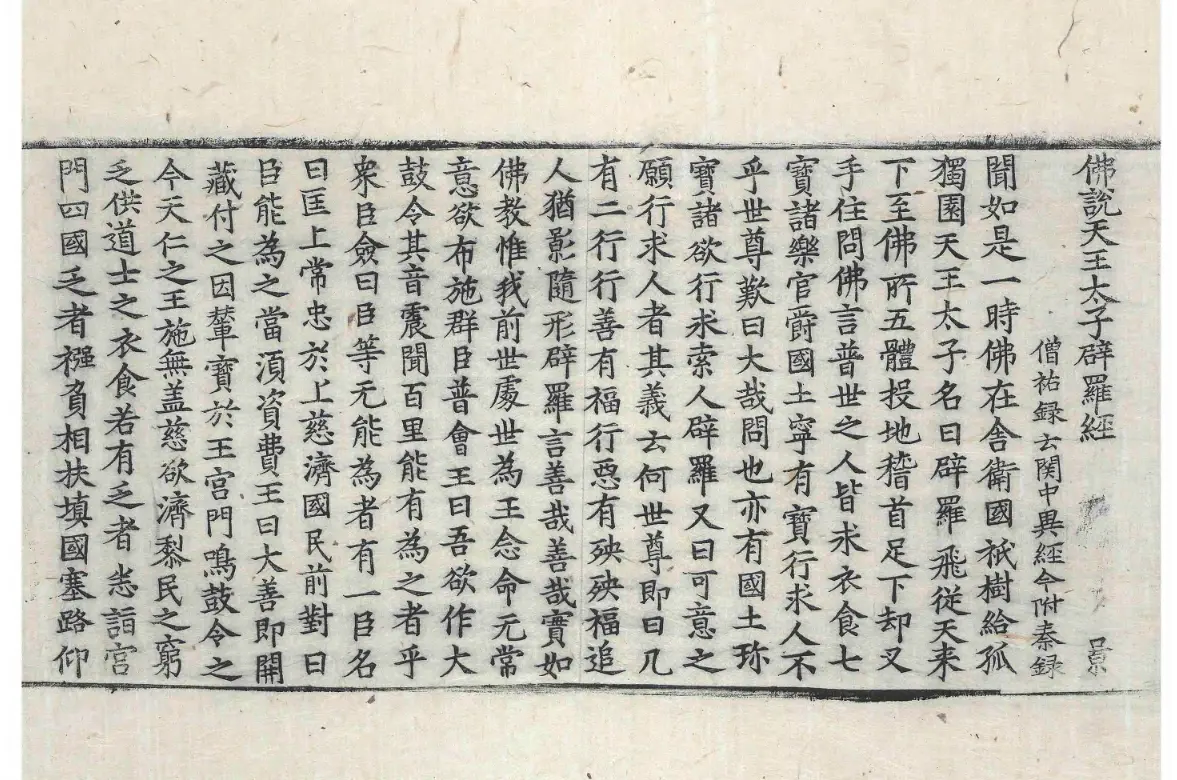 佛說天王太子辟羅經 景
僧祐録云関中異經今附秦録
聞如是一時佛在舍衛國祇樹給孤
獨園天王太子名曰辟羅飛從天来
下至佛所五體投地稽首足下却叉
手住問佛言普世之人皆求衣食七
寶諸樂官爵國土寧有寶行求人不
乎世尊歎曰大哉問也亦有國土珎
寶諸欲行求索人辟羅又曰可意之
願行求人者其義云何世尊即曰凡
有二行行善有福行惡有殃殃福追
人猶影隨形辟羅言善哉善哉實如
佛教惟我前世處世為王念命无常
意欲布施群臣普會王曰吾欲作大
鼓令其音震聞百里能有為之者乎
衆臣僉曰臣等无能為者有一臣名
曰匡上常忠於上慈濟國民前對曰
臣能為之當湏資費王曰大善即開
藏付之因輦寶於王宮門鳴鼓令之
今天仁之王施無盖慈欲濟黎民之窮
乏供道士之衣食若有乏者恙詣宮
門四國乏者襁負相扶填國塞路仰